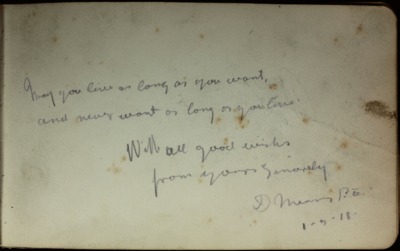 May you live as long as you want,
and never want as long as you live.
With all good wishes
from yours Sincerely
D
1-9-18.